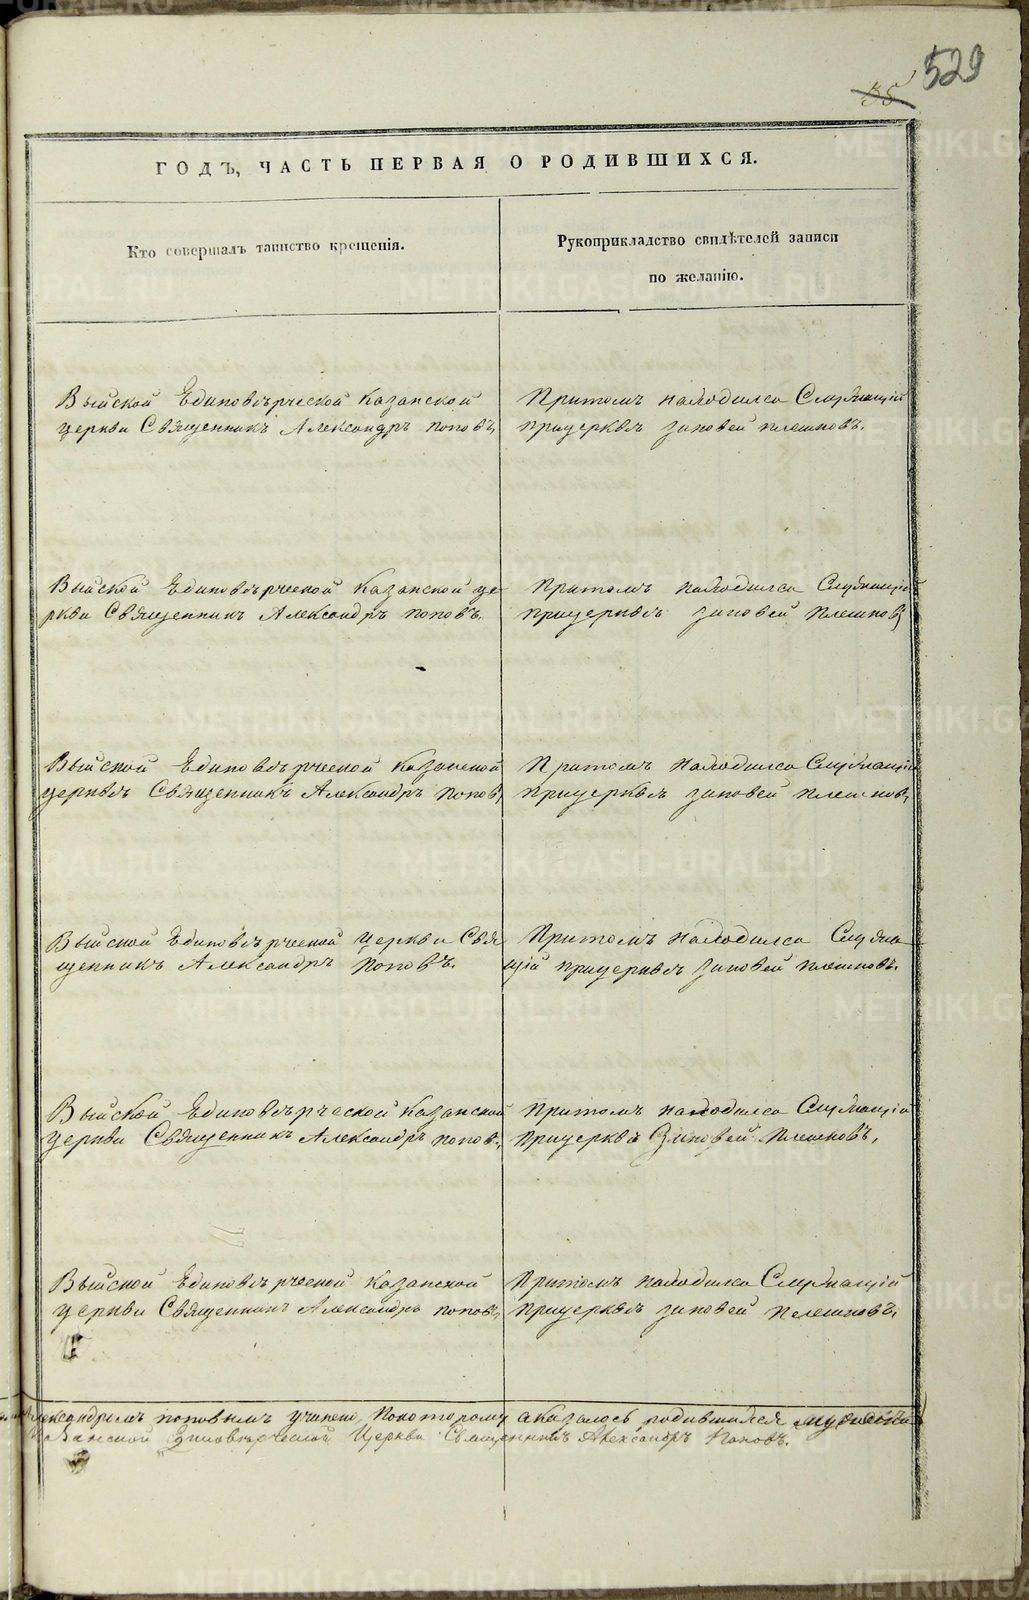 529
35
ГОДЪ, ЧАСТЬ ПЕРВАЯ О РОДИВШИХСЯ.
Кто совершалъ таинство крещенія.
Рукоприкладство свидѣтелей записи
по желанію.
Выйской Единовѣрческой Казанской
церкви Священникъ Александръ Поповъ,
Притомъ находился Служащій
прицерквѣ Зиновей Плешковъ.
Выйской Единовѣрческой Казанской це
ркви Священникъ Александръ Поповъ.
Притомъ находился Служащій
прицерквѣ Зиновей Плешковъ
Выйской Единовѣрческой Казанской
церквѣ Священникъ Александръ Поповъ,
Притомъ находился Служащій
прицерквѣ Зиновей Плешковъ,
Выйской Единовѣрческой церкви Свя
щенникъ Александръ Поповъ.
Притомъ находился Служа
щій прицерквѣ Зиновей Плешковъ.
Выйской Единовѣрческой Казанской
церкви Священникъ Александръ Поповъ,
Притомъ находился Служащій
прицерквѣ Зиновей Плешковъ,
Выйской Единовѣрческой Казанской
церкви Священникъ Александръ Поповъ,
Притомъ находился Служащій
прицерквѣ Зиновей Плешковъ,
Александромъ Поповымъ учинено, Покоторому аказалось родившихся
Казанской Единовѣрческой Церкви Священникъ Александръ Поповъ.
METRIKI.GASO-URAL.RU